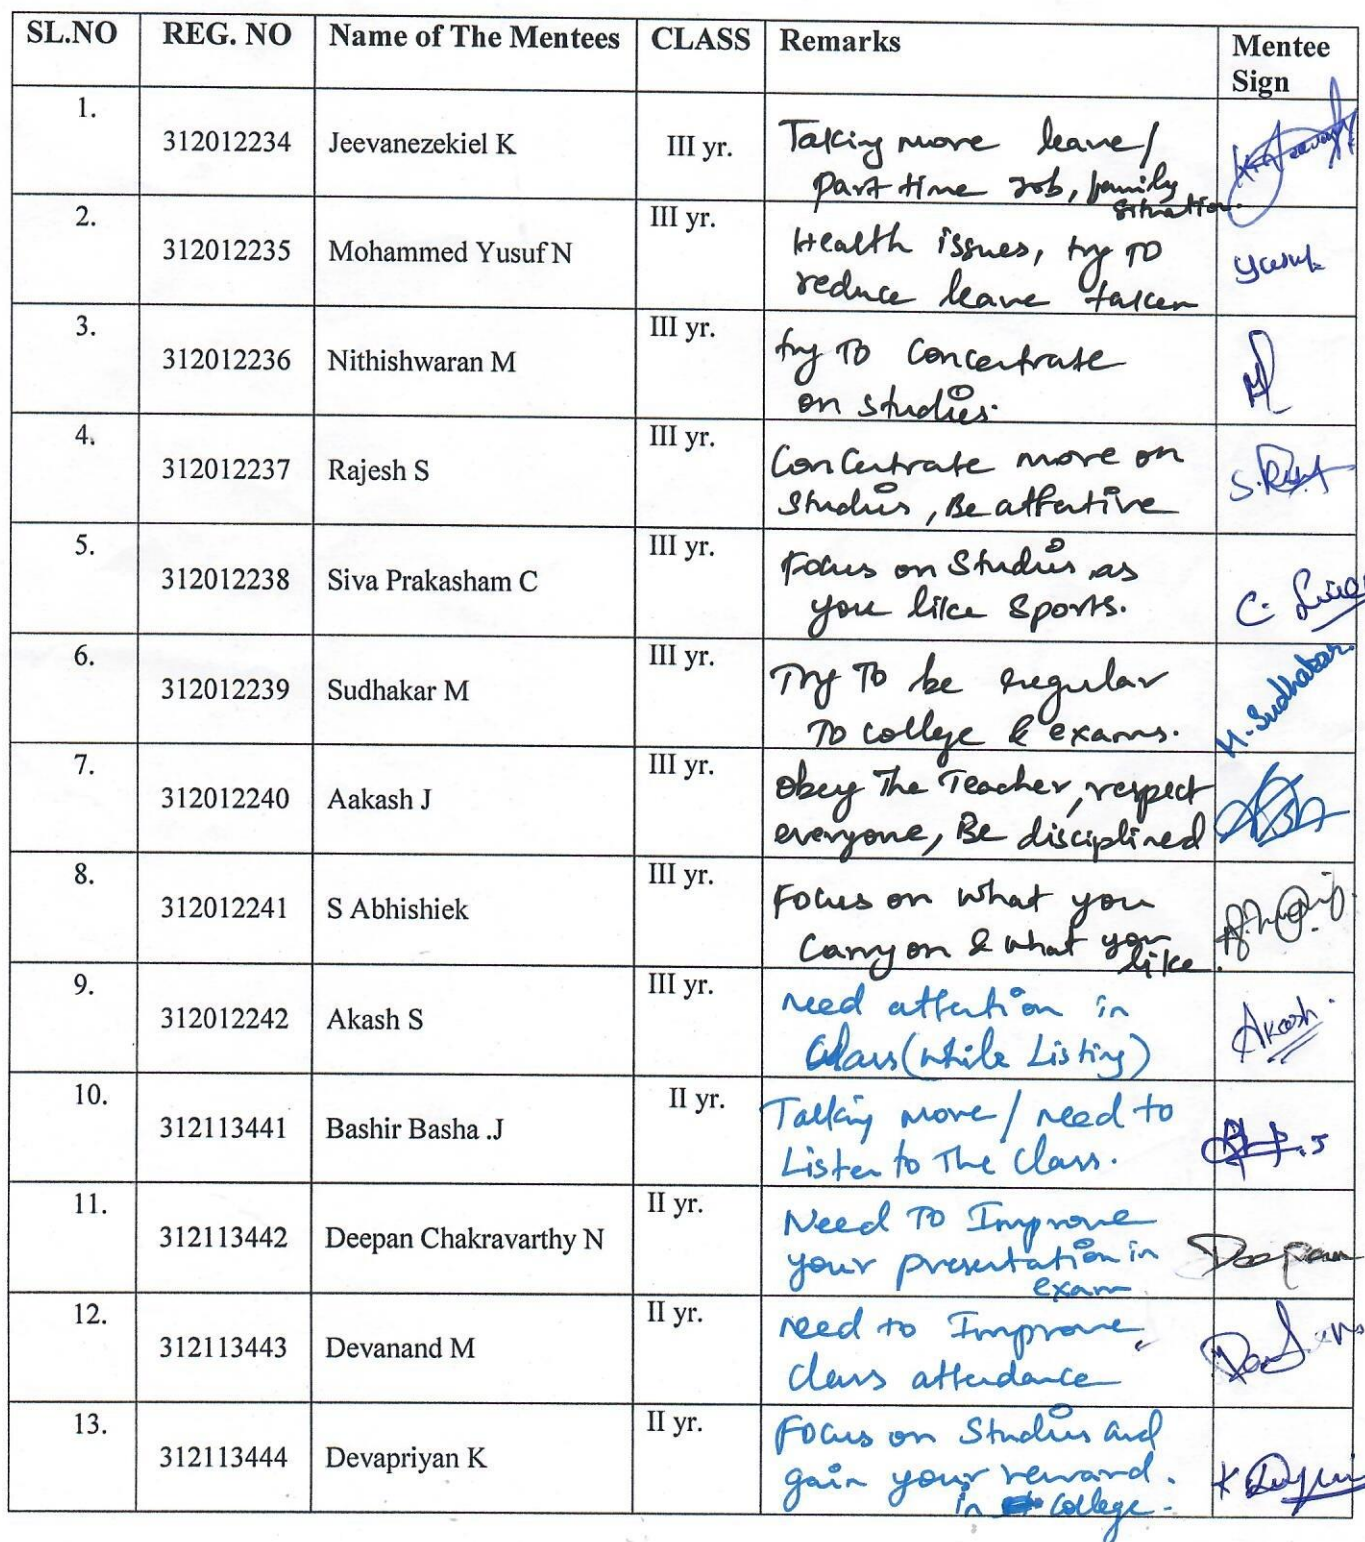 SL.NO REG. NO Name of The Mentees CLASS Remarks Mentee
Sign
1.
312012234 Jeevanezekiel K III yr. Taking more leave/
part time job, family
situation.
2. III yr.
312012235 Mohammed Yusuf N Health issues, try To
reduce leave taken
Yusuf
3. III yr.
312012236 Nithishwaran M try To Concentrate
on studies.
4. III yr.
312012237 Rajesh S Concentrate more on
Studies, Be attentive
5. III yr.
312012238 Siva Prakasham C Focus on Studies as
you like Sports.
C.
6. III yr.
312012239 Sudhakar M Try To be regular
To college & exams.
M. Sudhakar
7. III yr.
312012240 Aakash J obey The Teacher, respect
everyone, Be disciplined
8. III yr.
312012241 S Abhishiek Focus on what you
Carry on & what you
like.
9. III yr.
312012242 Akash S need attention in
class (while Listing)
Akash.
10. II yr.
312113441 Bashir Basha .J Talking more / need to
Listen to The Class.
11. II yr.
312113442 Deepan Chakravarthy N Need To Improve
your presentation in
exam
Deepan
12. II yr.
312113443 Devanand M need to Improve
class attendance
13. II yr.
312113444 Devapriyan K Focus on Studies and
gain your reward.
in College.